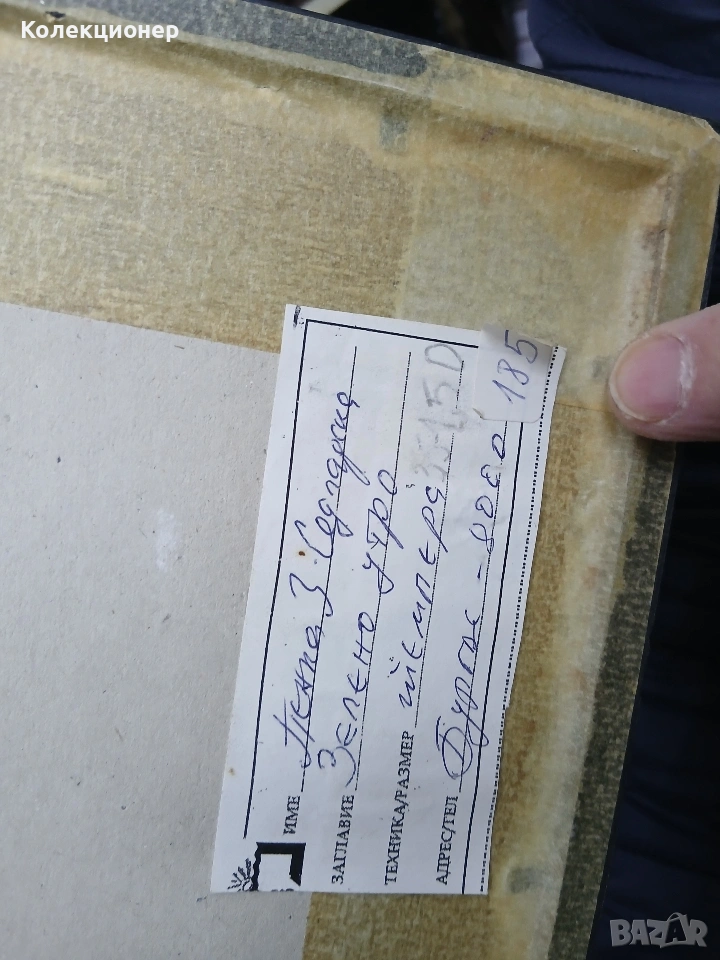 Колекционер
ИМЕ Пенка З.
ЗАГЛАВИЕ Зелено утро
ТЕХНИКА/РАЗМЕР темпера 35
АДРЕС/ТЕЛ Бургас - 8000
185
BAZAR